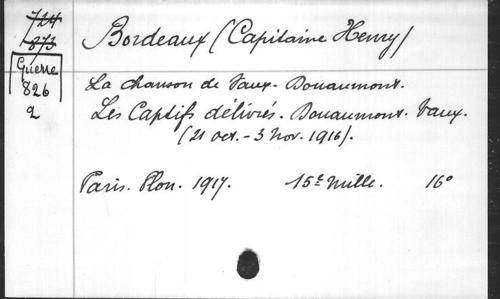 724
873
Guerre
826
2
Bordeaux (Capitaine Henry)
La chanson de Vaux - Douaumont.
Les Captifs délivrés. Douaumont. Vaux.
(21 oct. - 3 nov. 1916).
Paris. Plon. 1917. 15e mille. 16°